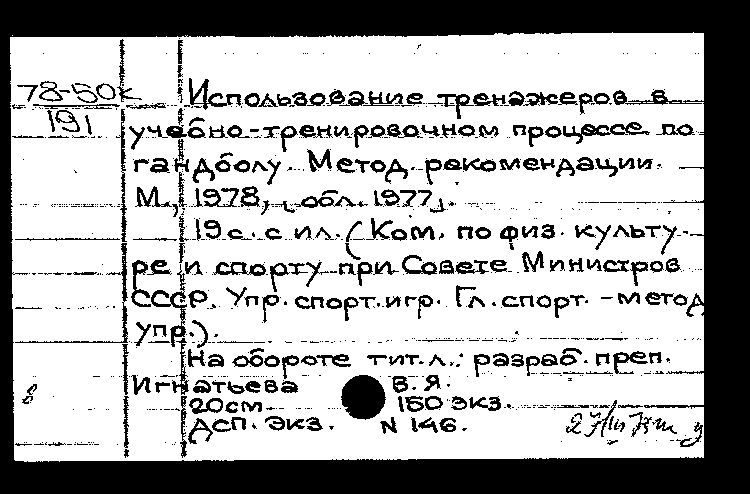 78-50к
191
Использование тренажеров в
учебно-тренировочном процессе по
гандболу. Метод. рекомендации.
М., 1978, [обл. 1977].
19 с. с ил. (Ком. по физ. культу-
ре и спорту при Совете Министров
СССР. Упр. спорт. игр. Гл. спорт. - метод
упр.).
На обороте тит. л.: разраб. преп.
Игнатьева В. Я.
20 см. 150 экз.
Дсп. Экз. N 146.
в